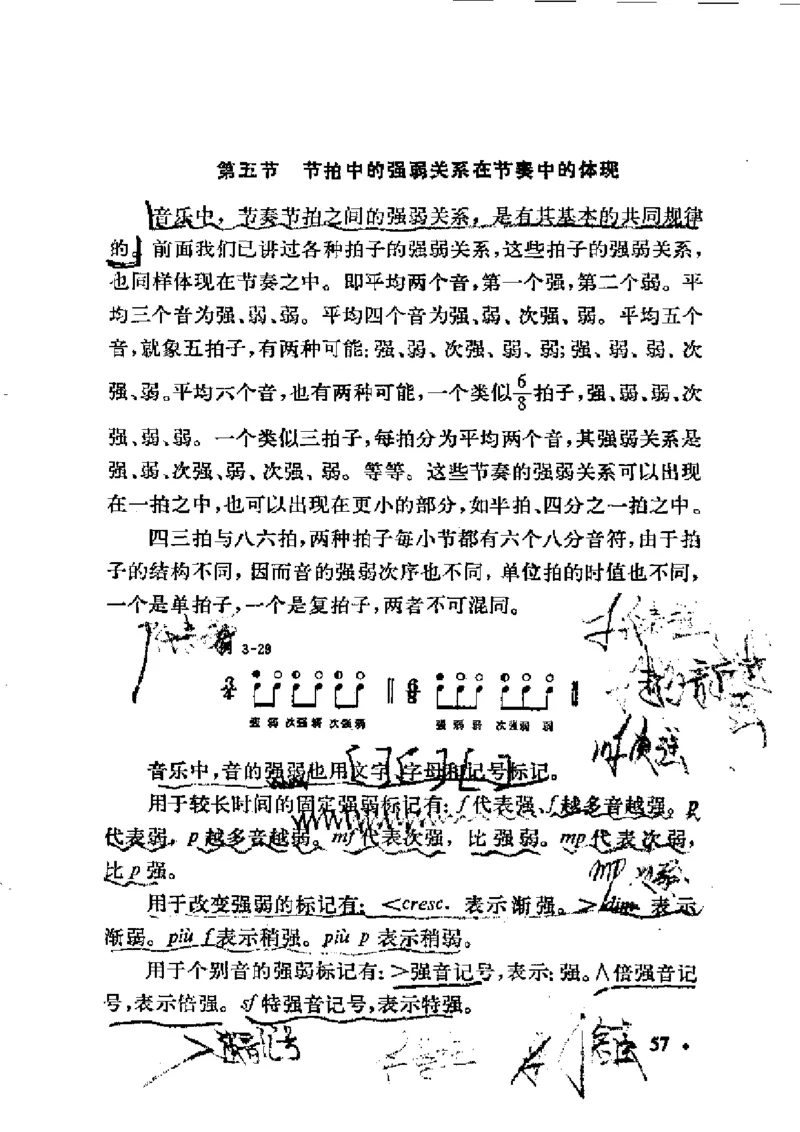 第五节 节拍中的强弱关系在节奏中的体现
音乐中，节奏节拍之间的强弱关系，是有其基本的共同规律
的。前面我们已讲过各种拍子的强弱关系，这些拍子的强弱关系，
也同样体现在节奏之中。即平均两个音，第一个强，第二个弱。平
均三个音为强、弱、弱。平均四个音为强、弱、次强、弱。平均五个
音，就象五拍子，有两种可能：强、弱、次强、弱、弱；强、弱、弱、次
强、弱。平均六个音，也有两种可能，一个类似6/8拍子，强、弱、弱、次
强、弱、弱。一个类似三拍子，每拍分为平均两个音，其强弱关系是
强、弱、次强、弱、次强、弱。等等。这些节奏的强弱关系可以出现
在一拍之中，也可以出现在更小的部分，如半拍、四分之一拍之中。
四三拍与八六拍，两种拍子每小节都有六个八分音符，由于拍
子的结构不同，因而音的强弱次序也不同，单位拍的时值也不同，
一个是单拍子，一个是复拍子，两者不可混同。
例 3-29
3/4 6/8
强 弱 次强 弱 次强 弱 强 弱 弱 次强 弱 弱
音乐中，音的强弱也用文字、字母和记号标记。
用于较长时间的固定强弱标记有：f代表强、f越多音越强。p
代表弱，p越多音越弱。mf代表次强，比强弱。mp代表次弱，
比p强。
mp
用于改变强弱的标记有：<cresc. 表示渐强。>dim 表示
渐弱。più f表示稍强。più p 表示稍弱。
用于个别音的强弱标记有：>强音记号，表示：强。∧倍强音记
号，表示倍强。sf特强音记号，表示特强。
>强音记号
57